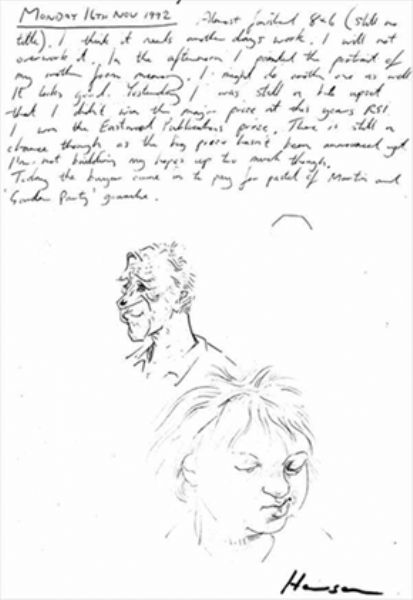 MONDAY 16TH NOV 1992 Almost finished 8x6 (still no
title). I think it needs another days work. I will not
overwork it. In the afternoon I painted the portrait of
my mother from memory. I might do another one as well
It looks good. Yesterday I was still a bit upset
that I didn't win the major prize at this years RSI.
I won the Eastwood Publications prize. There is still a
chance though as the big prize hasn't been announced yet
I'm not building my hopes up too much though.
Today the buyer came in to pay for pastel of Martin and
'Garden Party' gouache.